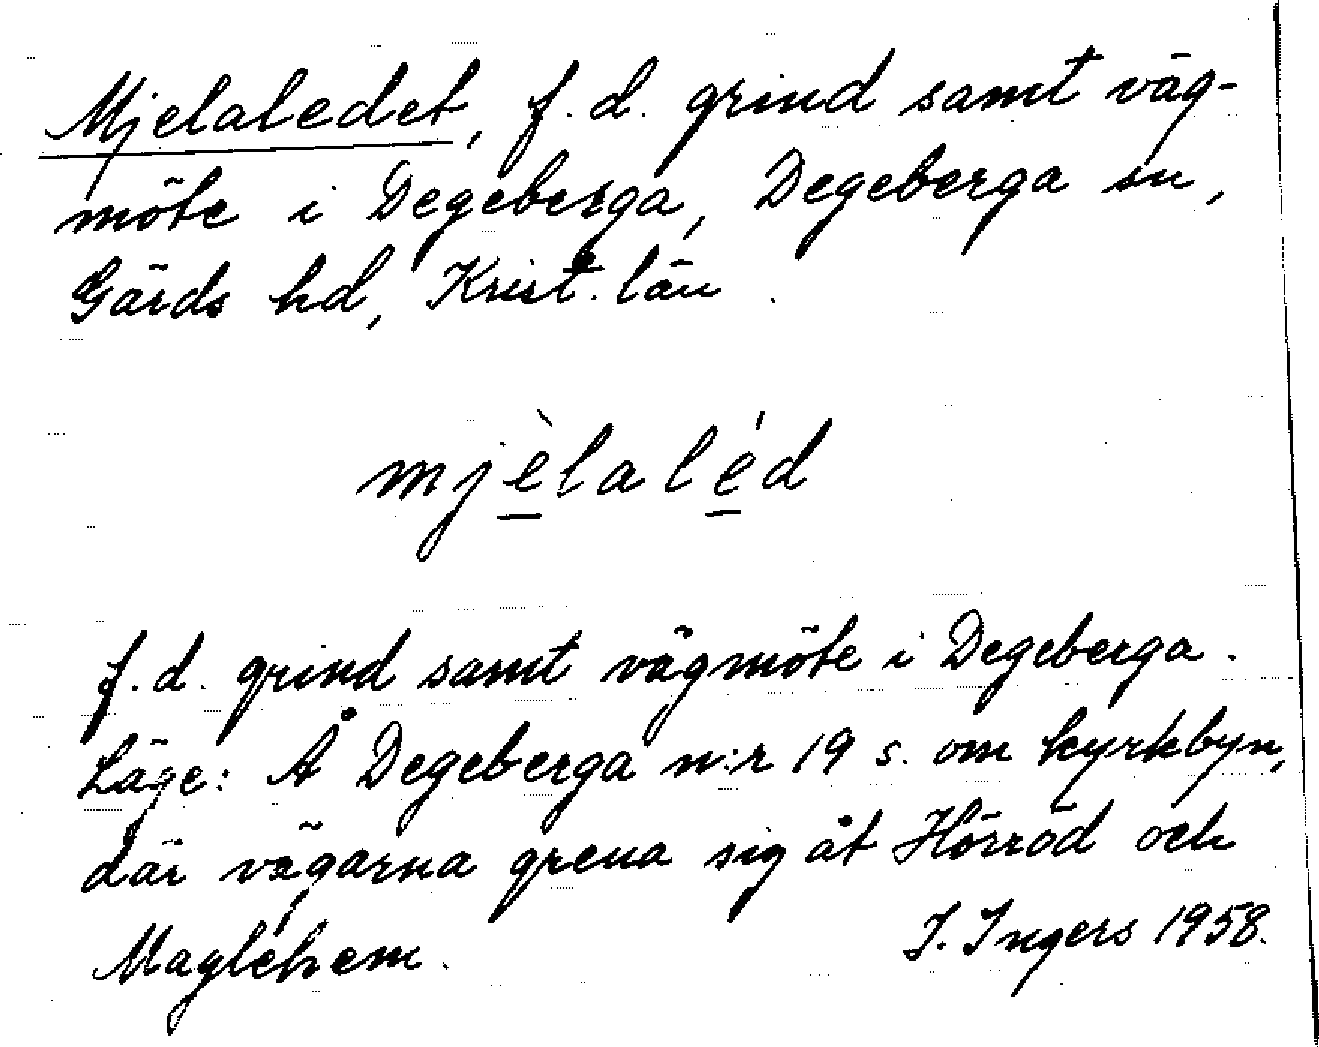 Mjelaledet, f.d. grind samt väg-
möte i Degeberga, Degeberga sn,
Gärds hd, Krist. län.
mjèlaléd
f.d. grind samt vägmöte i Degeberga.
Läge: Å Degeberga n:r 19 s. om kyrkbyn,
där vägarna grena sig åt Hörröd och
Maglehem.
I. Ingers 1958.